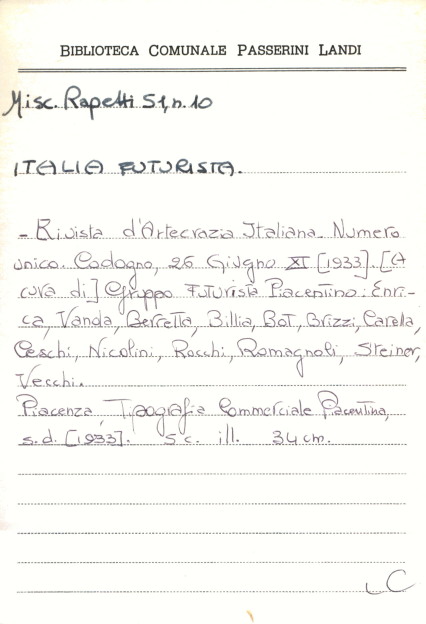 BIBLIOTECA COMUNALE PASSERINI LANDI
Misc. Rapetti 51, n. 10
ITALIA FUTURISTA.
- Rivista d'Artecrazia Italiana. Numero
unico. Codogno, 26 Giugno XI [1933]. [A
cura di] Gruppo Futurista Piacentino: Enri-
ca, Vanda, Berretta, Billia, Bot, Brizzi, Carella,
Ceschi, Nicolini, Rocchi, Romagnoli, Steiner,
Vecchi.
Piacenza, Tipografia Commerciale Piacentina,
s.d. [1933]. 5 c. ill. 34 cm.
LC